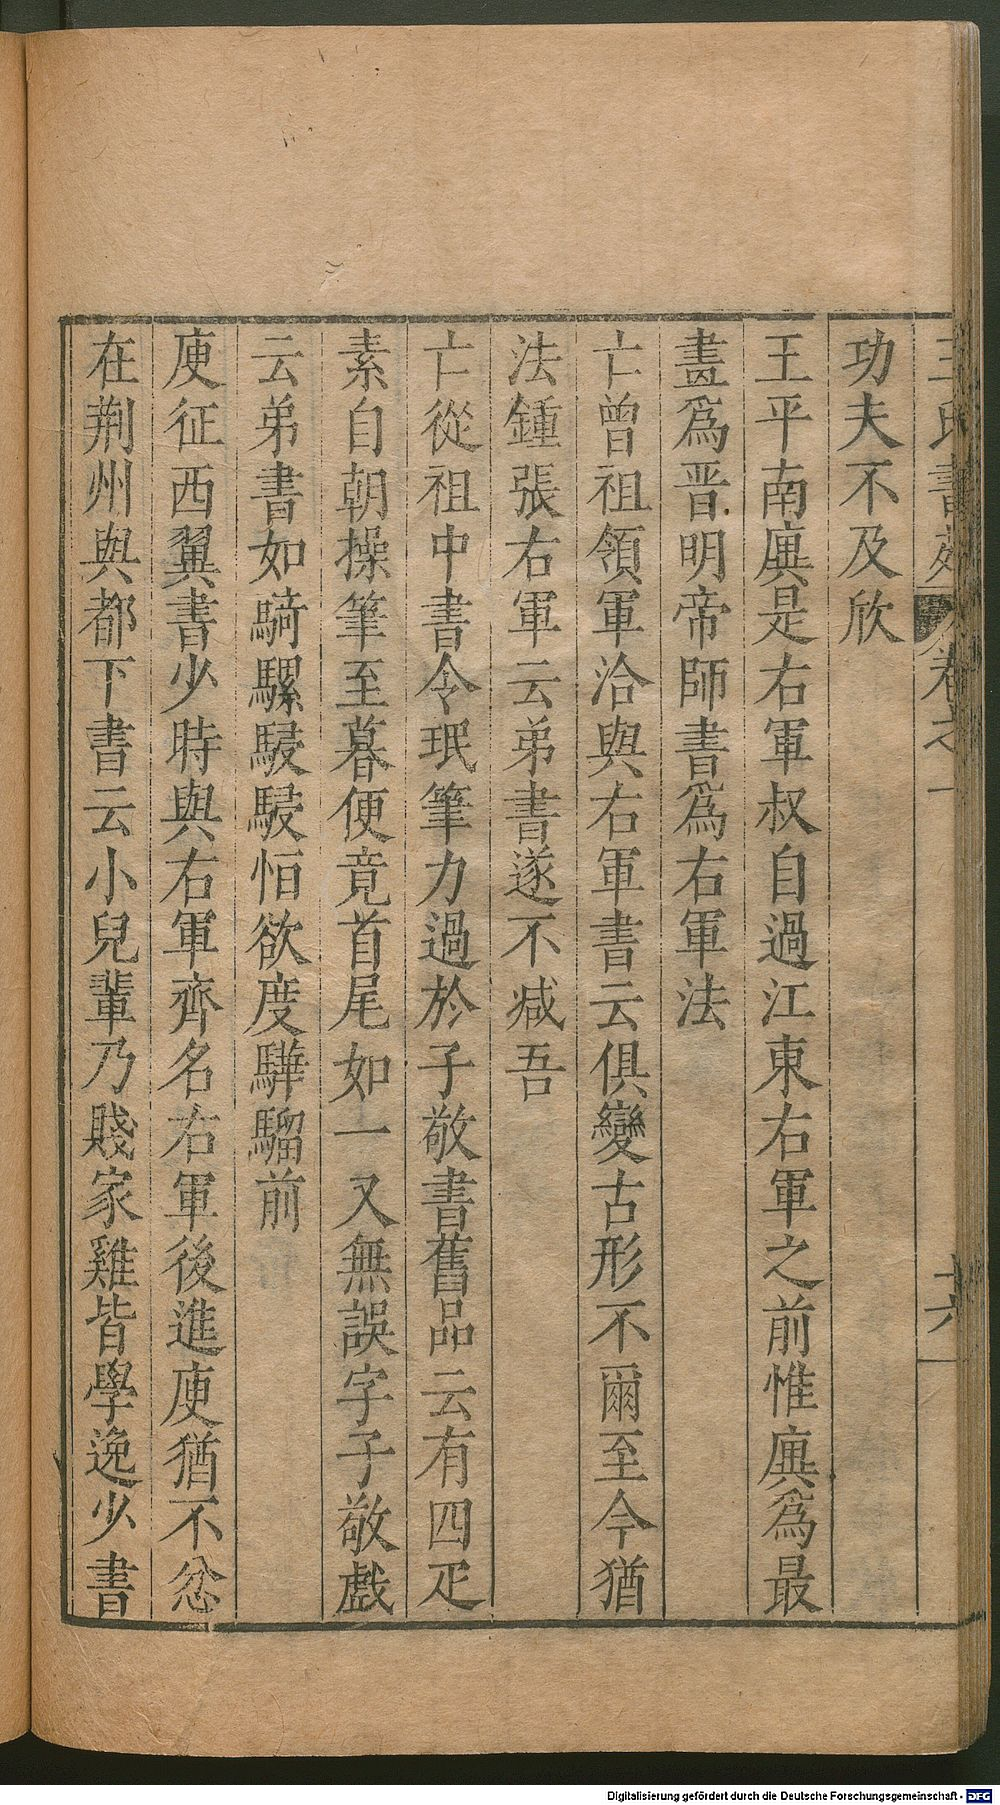 王氏書苑 卷之一 十六
功夫不及欣
王平南廙是右軍叔自過江東右軍之前惟廙為最
畫為晋明帝師書為右軍法
亡曾祖領軍洽與右軍書云俱變古形不爾至今猶
法鍾張右軍云弟書遂不減吾
亡從祖中書令珉筆力過於子敬書舊品云有四疋
素自朝操筆至暮便竟首尾如一又無誤字子敬戲
云弟書如騎騾駸駸恒欲度驊騮前
庾征西翼書少時與右軍齊名右軍後進庾猶不忿
在荆州與都下書云小兒輩乃賤家雞皆學逸少書
Digitalisierung gefördert durch die Deutsche Forschungsgemeinschaft - DFG